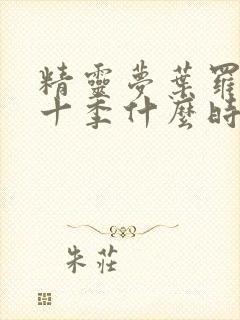 精靈夢葉羅
十季什麼時
朱莊